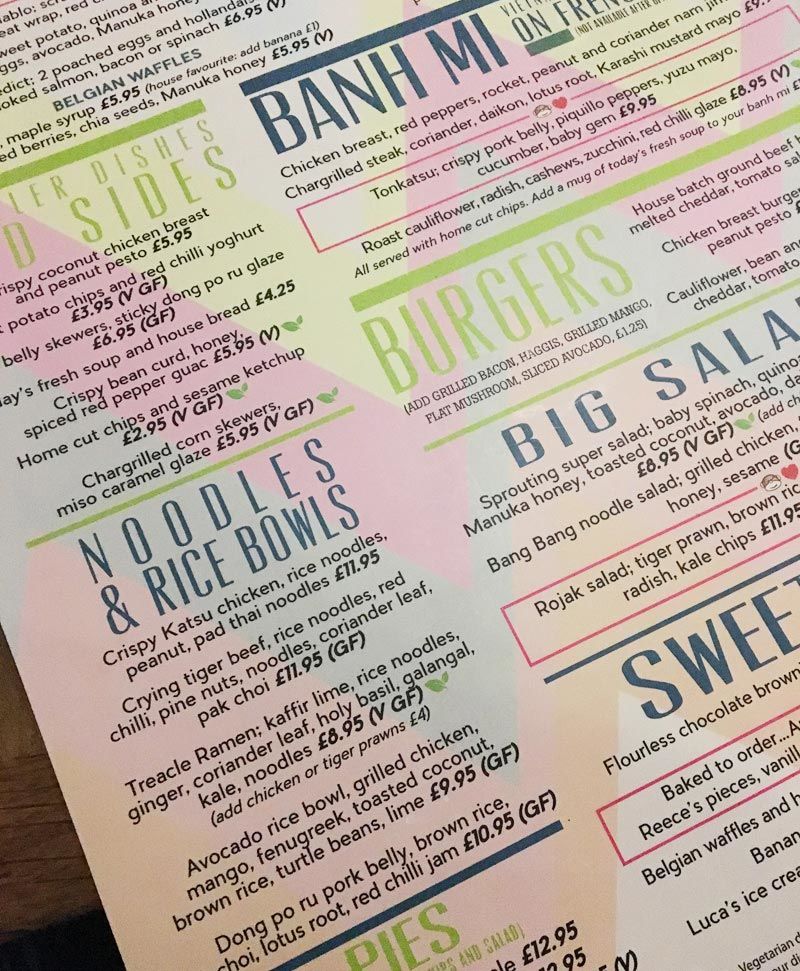 eat wrap, red
weet potato, quinoa
ggs, avocado, Manuka honey
dict; 2 poached eggs and hollandaise
oked salmon, bacon or spinach £6.95 (V)
BELGIAN WAFFLES
maple syrup £5.95 (house favourite: add banana £1)
ed berries, chia seeds, Manuka honey £5.95 (V)
LER DISHES
D SIDES
rispy coconut chicken breast
and peanut pesto £5.95
t potato chips and red chilli yoghurt
£3.95 (V GF)
belly skewers, sticky dong po ru glaze
£6.95 (GF)
ay's fresh soup and house bread £4.25
Crispy bean curd, honey,
spiced red pepper guac £5.95 (V)
Home cut chips and sesame ketchup
£2.95 (V GF)
Chargrilled corn skewers,
miso caramel glaze £5.95 (V GF)
NOODLES
& RICE BOWLS
Crispy Katsu chicken, rice noodles,
peanut, pad thai noodles £11.95
Crying tiger beef, rice noodles, red
chilli, pine nuts, noodles, coriander leaf,
pak choi £11.95 (GF)
Treacle Ramen; kaffir lime, rice noodles,
ginger, coriander leaf, holy basil, galangal,
kale, noodles £8.95 (V GF)
(add chicken or tiger prawns £4)
Avocado rice bowl, grilled chicken,
mango, fenugreek, toasted coconut,
brown rice, turtle beans, lime £9.95 (GF)
Dong po ru pork belly, brown rice,
choi, lotus root, red chilli jam £10.95 (GF)
PIES
AND SALAD)
£12.95
(V)
BANH MI
ON FREN
(NOT AVAILABLE AFTER
Chicken breast, red peppers, rocket, peanut and coriander nam jim
Chargrilled steak, coriander, daikon, lotus root, Karashi mustard mayo £9.
Tonkatsu; crispy pork belly, piquillo peppers, yuzu mayo,
cucumber, baby gem £9.95
Roast cauliflower, radish, cashews, zucchini, red chilli glaze £8.95 (V)
All served with home cut chips. Add a mug of today's fresh soup to your banh mi £
BURGERS
(ADD GRILLED BACON, HAGGIS, GRILLED MANGO,
FLAT MUSHROOM, SLICED AVOCADO, £1.25)
House batch ground beef
melted cheddar, tomato sa
Chicken breast burger
peanut pesto £
Cauliflower, bean an
cheddar, tomato
BIG SALA
Sprouting super salad; baby spinach, quinoa
Manuka honey, toasted coconut, avocado, da
£8.95 (V GF) (add ch
Bang Bang noodle salad; grilled chicken,
honey, sesame (G
Rojak salad; tiger prawn, brown ric
radish, kale chips £11.95
SWEET
Flourless chocolate brown
Baked to order...A
Reece's pieces, vanill
Belgian waffles and h
Banan
Luca's ice crea
Vegetarian d